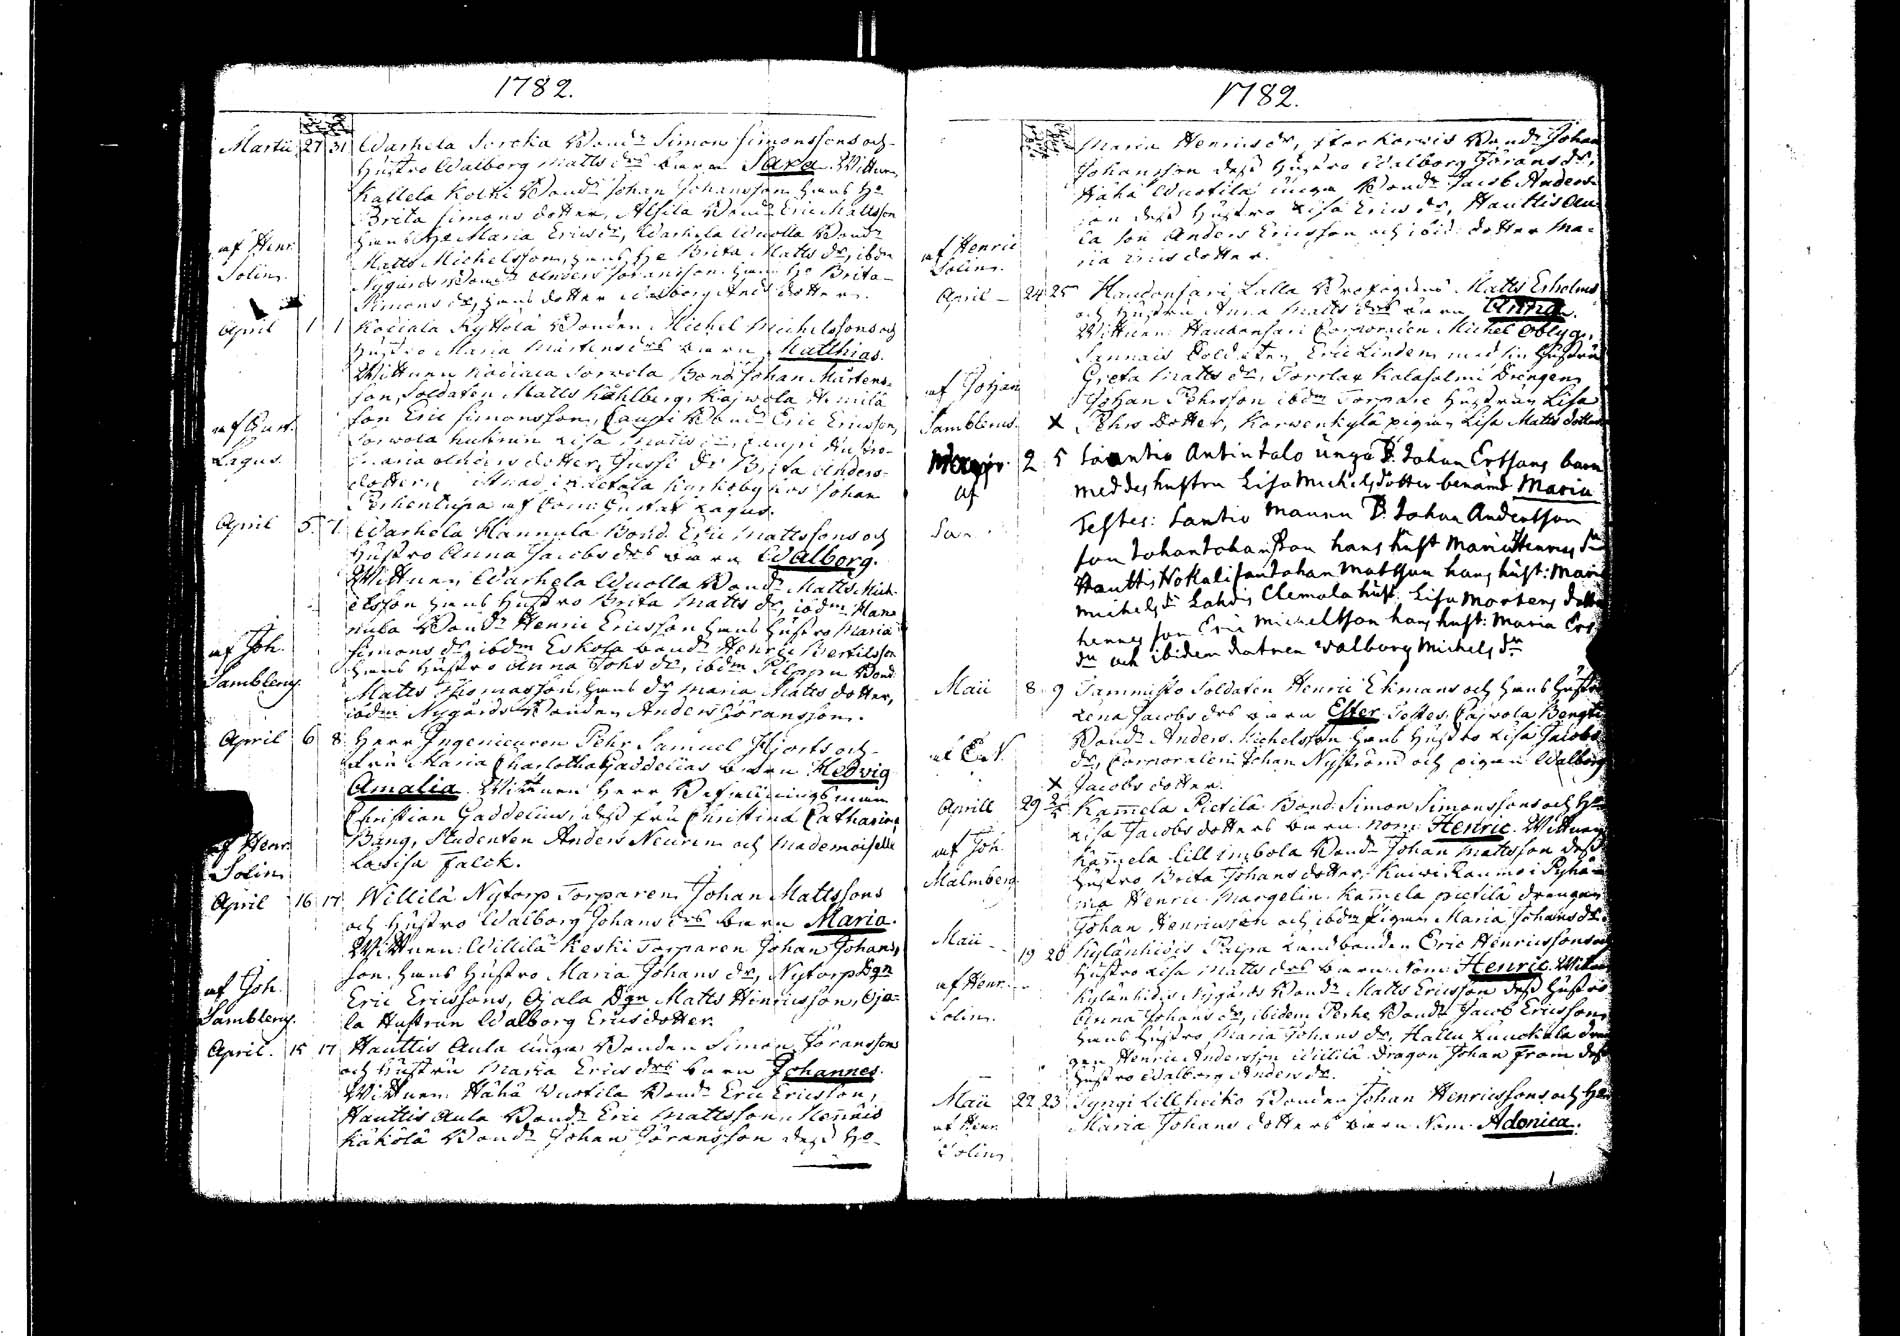 1782.
Martii 27 31 Warhela Sorcka Bond:n Simon Simonssons och
Hustro Walborg Matts drs barn Sara. Wittnen
Kallela Kolki Bond:n Johan Johansson hans H:o
Brita Simons dotter, Alsila Bond:n Eric Mattsson
hans H:o Maria Erics dr, Warhela Wuolla Bond:n
af Henr. Matts Michelsson, hans H:o Brita Matts dr, ibdm
Solin. Nygårds Bond:n Anders Göransson hans H:o Brita
Simons dr, hans dotter Walborg Anders dotter.
April 1 1 Kociala Kyttölä Bonden Michel Michelssons och
Hustro Maria Mårtens drs barn Matthias.
Wittnen Kociala Sorvola Bond:n Johan Mårtens-
son, Soldaten Matts Kahlberg, Kajvola Hemilä
af Gust. son Eric Simonsson, Caupi Bond:n Eric Ericsson,
Lagus. Sorvola hustrun Lisa Matts dr, Caupi hustro
Maria Anders dotter, Jussi dr Brita Anders-
dotter,
April 5 7 Warhela Hannula Bond. Eric Mattssons och
Hustro Anna Jacobs drs barn Walborg.
Wittnen Warhela Wuolla Bond:n Matts Mich-
elsson hans Hustro Brita Matts dr, ibdm Han-
nula Bond:n Henric Ericsson hans Hustro Maria
af Joh. Simons dr, ibdm Eskola bond:n Henric Bertilsson
Samblerus. hans Hustro Anna Johs dr, ibdm Pilppu Bond.
Matts Thomasson, hans dr Maria Matts dotter,
ibdm Nygårds Bonden Anders Göransson.
April 6 8 Herr Ingenieuren Pehr Samuel Hjorts och
Fru Maria Charlotha Gaddelias barn Hedvig
Amalia. Wittnen Herr Befallningsman
Christian Gaddelius, dess fru Christina Catharina
af Henr. Bang, Studenten Anders Neuren och Mademoiselle
Solin. Lovisa Falck.
April 16 17 Willilä Nytorp Torparen Johan Mattssons
och Hustro Walborg Johans drs barn Maria.
Wittnen: Willilä Keski Torparen Johan Johans-
son hans Hustro Maria Johans dr, Nytorp Dgn
af Joh. Eric Ericssons, Ojala Dgn Matts Hinricsson, Oja-
Samblerus. la Hustrun Walborg Erics dotter.
April. 15 17 Hauttis Aula unga Bonden Simon Göranssons
och Hustru Maria Erics drs barn Johannes.
Wittnen Hähä Vustila Bond:n Eric Ericsson,
Hauttis Aula Bond:n Eric Mattsson, Hennäis
Käkölä Bond:n Johan Göransson dess H:o
1782.
Maria Henrics dr, Bond:n Johan
Johansson dess Hustro Walborg Görans dr,
Hähä Wustila unga Bond:n Jacob Anders-
son dess Hustro Lisa Erics dr, Hauttis Au-
la son Anders Ericsson och ibid: dotter Ma-
af Henric ria Erics dotter.
Solin.
April 24 25 Haudonsari Lalla Brofogdens Matts Erholms
och Hustru Anna Matts drs barn Anna.
Wittnen: Haudonsari Corporalen Michel Oblyg,
Sannais Soldaten Eric Linden med sin Hustru
af Johan Greta Matts dr, Torrlax Kalasalmi Drengen
Johan Pehrsson ibdm Torpare Hustrun Lisa
Samblerus. x Pehrs Dotter, Karwenkylä pigan Lisa Matts dotter
2 5 Santio Antintalo unga B. Johan Ersons barn
med des hustru Lisa Michelsdotter benämd Maria
af Testes: Santio Maunu B. Johan Andersson
son Johan Johansson hans hust Maria Hennrs dr
Hauttis Wokali son Johan Matsson hans hust: Maria
Michels dr Lahdis Clemola hust. Lisa Mårtens dotter
hennes son Eric Michelsson hans hust: Maria Ers
dr och ibidem Walborg Michels dr
Maii 8 9 Tammisto Soldaten Henric Ekmans och hans Hustro
Lena Jacobs drs barn Ester. Testes. Cajvola Bengti
Bond:n Anders Michelsson hans Hustro Lisa Jacobs
dr, Corporalen Johan Nyström och pigan Walborg
x Jacobs dotter.
Aprill 29 2/5 Kamela Pietilä Bond. Simon Simonssons och H:o
Lisa Jacobs dotters barn nom: Henric. Wittnen
af Joh. Kamela Lill Imbola Bond:n Johan Mattsson dess
Malmberg Hustro Brita Johans dotter,
Henric Margelin. Kamela Pietilä drengen
Johan Henricsson och ibdm pigan Maria Johans dr.
Maii 19 20 Kylänhidis Paipa Landbonden Eric Henricssons och
Hustro Lisa Matts drs barn Nom: Henric. Wittnen
af Henr. Kylänhidis Nygårds Bond:n Matts Ericsson dess Hustro
Solin. Anna Johans dr, ibidem Perhe Bond:n Jacob Ericsson
hans Hustro Maria Johans dr, Hallu dren-
gen Henric Andersson Willilä Dragon Johan From dess
Hustro Walborg Anders dr.
Maii 22 23 Syngi Lillheiko Bonden Johan Henricssons och H:o
af Henr. Maria Johans dotters barn Nom: Adonica.
Solin